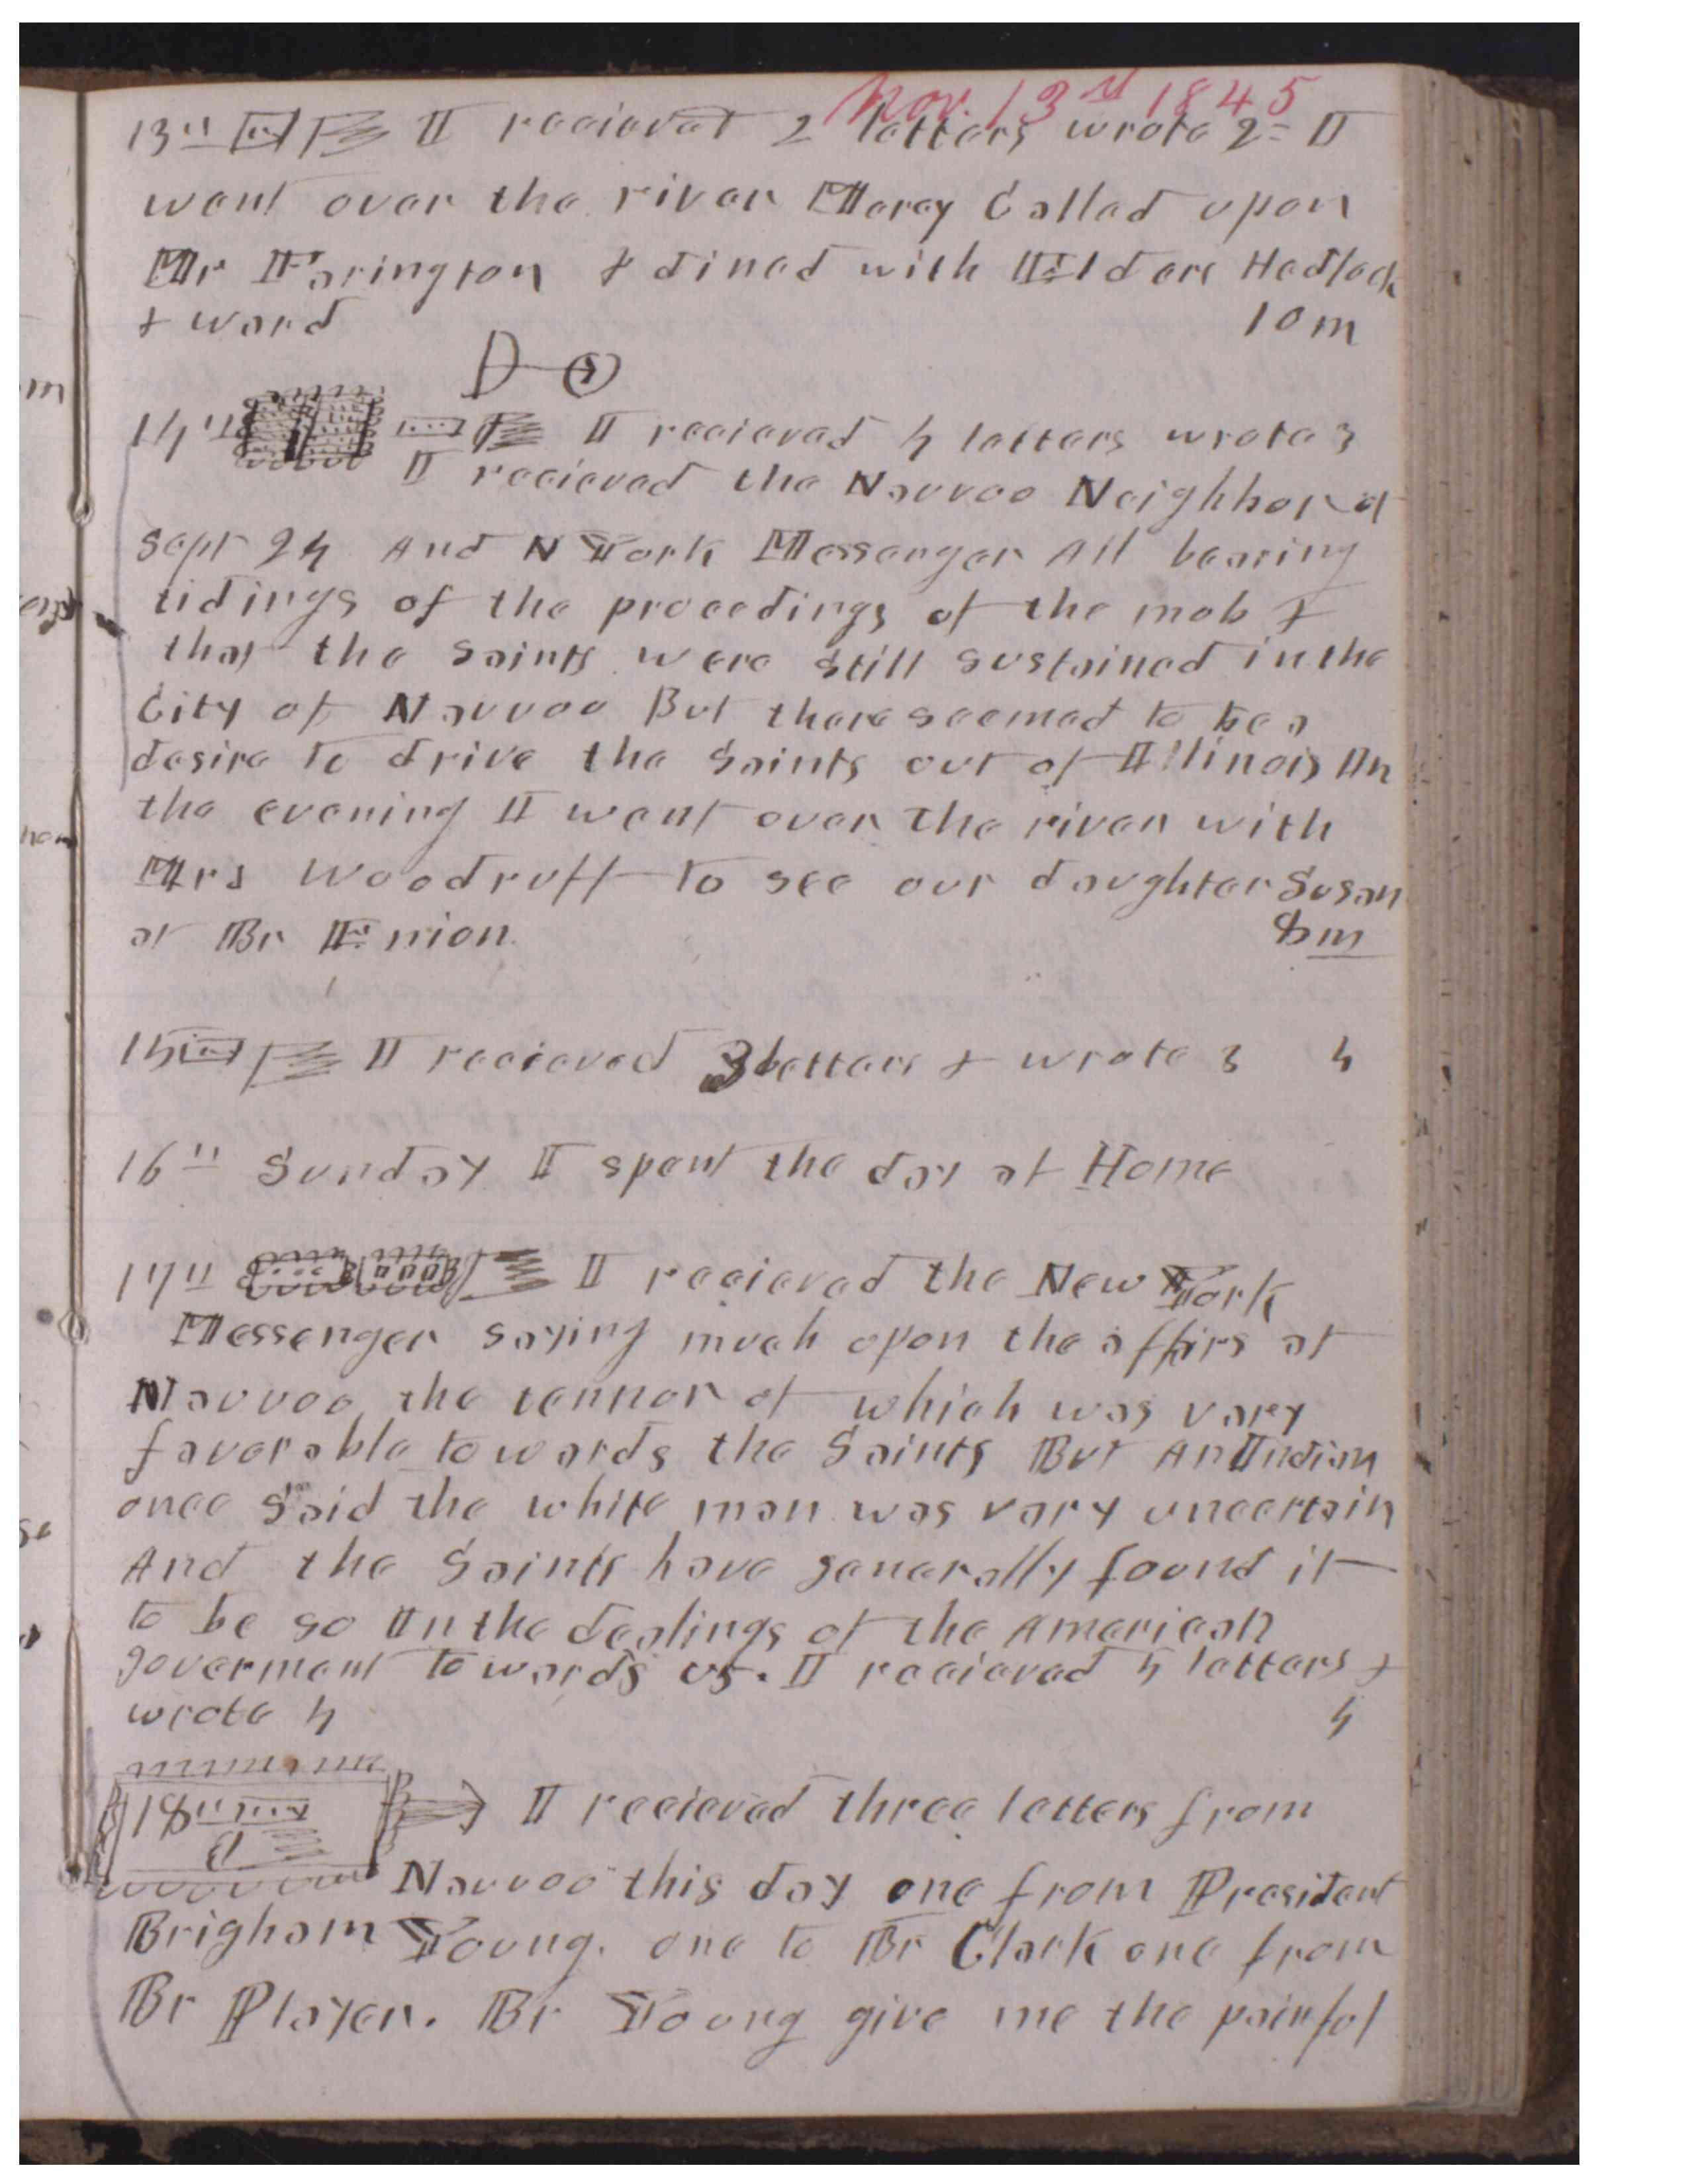 Nov. 13st 1845
13th I recieved 2 letters wrote 2= I
went over the river Mercy Called upon
Mr Farington & dined with Elders Hedlock
& ward 10 m
14th I recieved 4 letters wrote 3
I recieved the Nauvoo Neighbor of
Sept 24 And N York Messenger All bearing
tidings of the procedings of the mob &
that the Saints were still sustained in the
City of Nauvoo But there seemed to be a
desire to drive the Saints out of Illinois In
the evening I went over the river with
Mrs Woodruff to see our daughter Susan
at Br Enion. 8 m
15 I recieved 3 letters & wrote 3 4
16th Sunday I spent the day at Home
17th I recieved the New York
Messenger saying much upon the affairs at
Nauvoo the tennor of which was vary
favorable towards the Saints But An Indian
once said the white man was vary uncertain
And the Saints have generally found it
to be so In the dealings of the American
goverment towards us. I recieved 4 letters &
wrote 4 4
18th I recieved three letters from
Nauvoo this day one from President
Brigham Young. one to Br Clark one from
Br Player. Br Young give me the painful